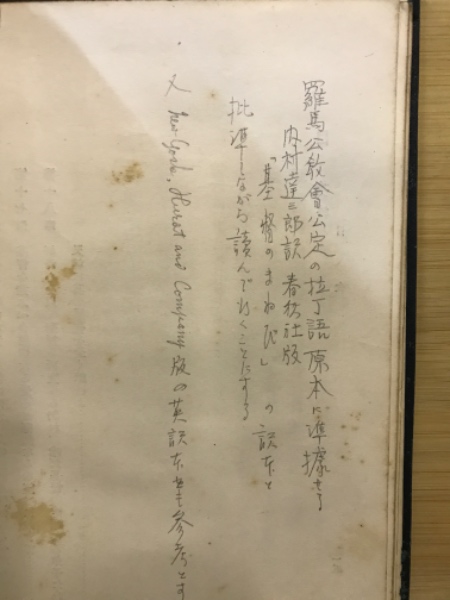 羅馬公教會公定の拉丁語原本に準據せる
内村達三郎訳 春秋社版
「基督のまねび」の訳本と
批準しながら讀んで行くことにする
又 New York, Hurst and Company 版の英訳本をも参考とす